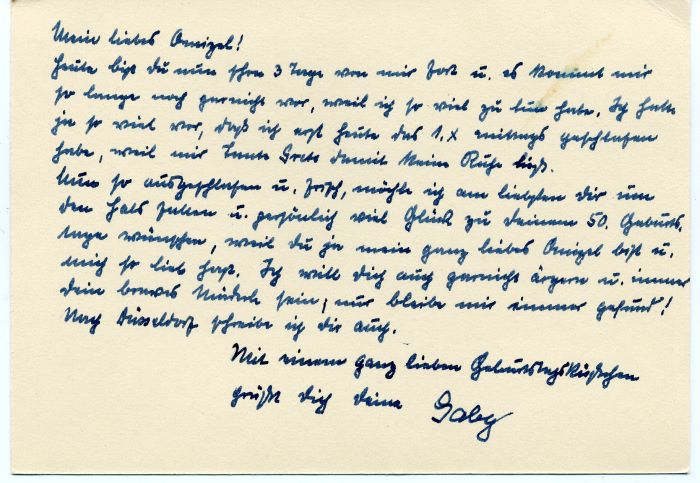 Mein liebes Omizel!
Heute bist du nun schon 3 Tage von mir fort u. es kommt mir
so lange noch garnicht vor, weil ich so viel zu tun hatte. Ich hatte
ja so viel vor, daß ich erst heute das 1. x mittags geschlafen
habe, weil mir Tante Grete damit keine Ruhe ließ.
Nun so ausgeschlafen u. frisch, möchte ich am liebsten dir um
den Hals fallen u. persönlich viel Glück zu deinem 50. Geburts,
tage wünschen, weil du ja mein ganz liebes Omizel bist u.
mich so lieb hast. Ich will dich auch garnicht ärgern u. immer
dein braves sein, nur bleibe mir immer gesund!
Nach Düsseldorf schreibe ich dir auch.
Mit einem ganz lieben Geburtstagsküßchen
grüßt dich deine Gaby